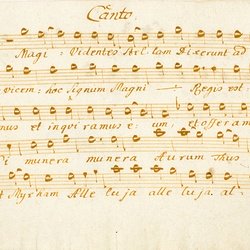 Canto.
Magi : Videntes Stellam Dixerunt ad
vicem: hoc Signum Magni — Regis est
mus et inquiramus e : um, et offeram
i munera munera Aurum Thus
t Myrrham Alle luja alle luja. al